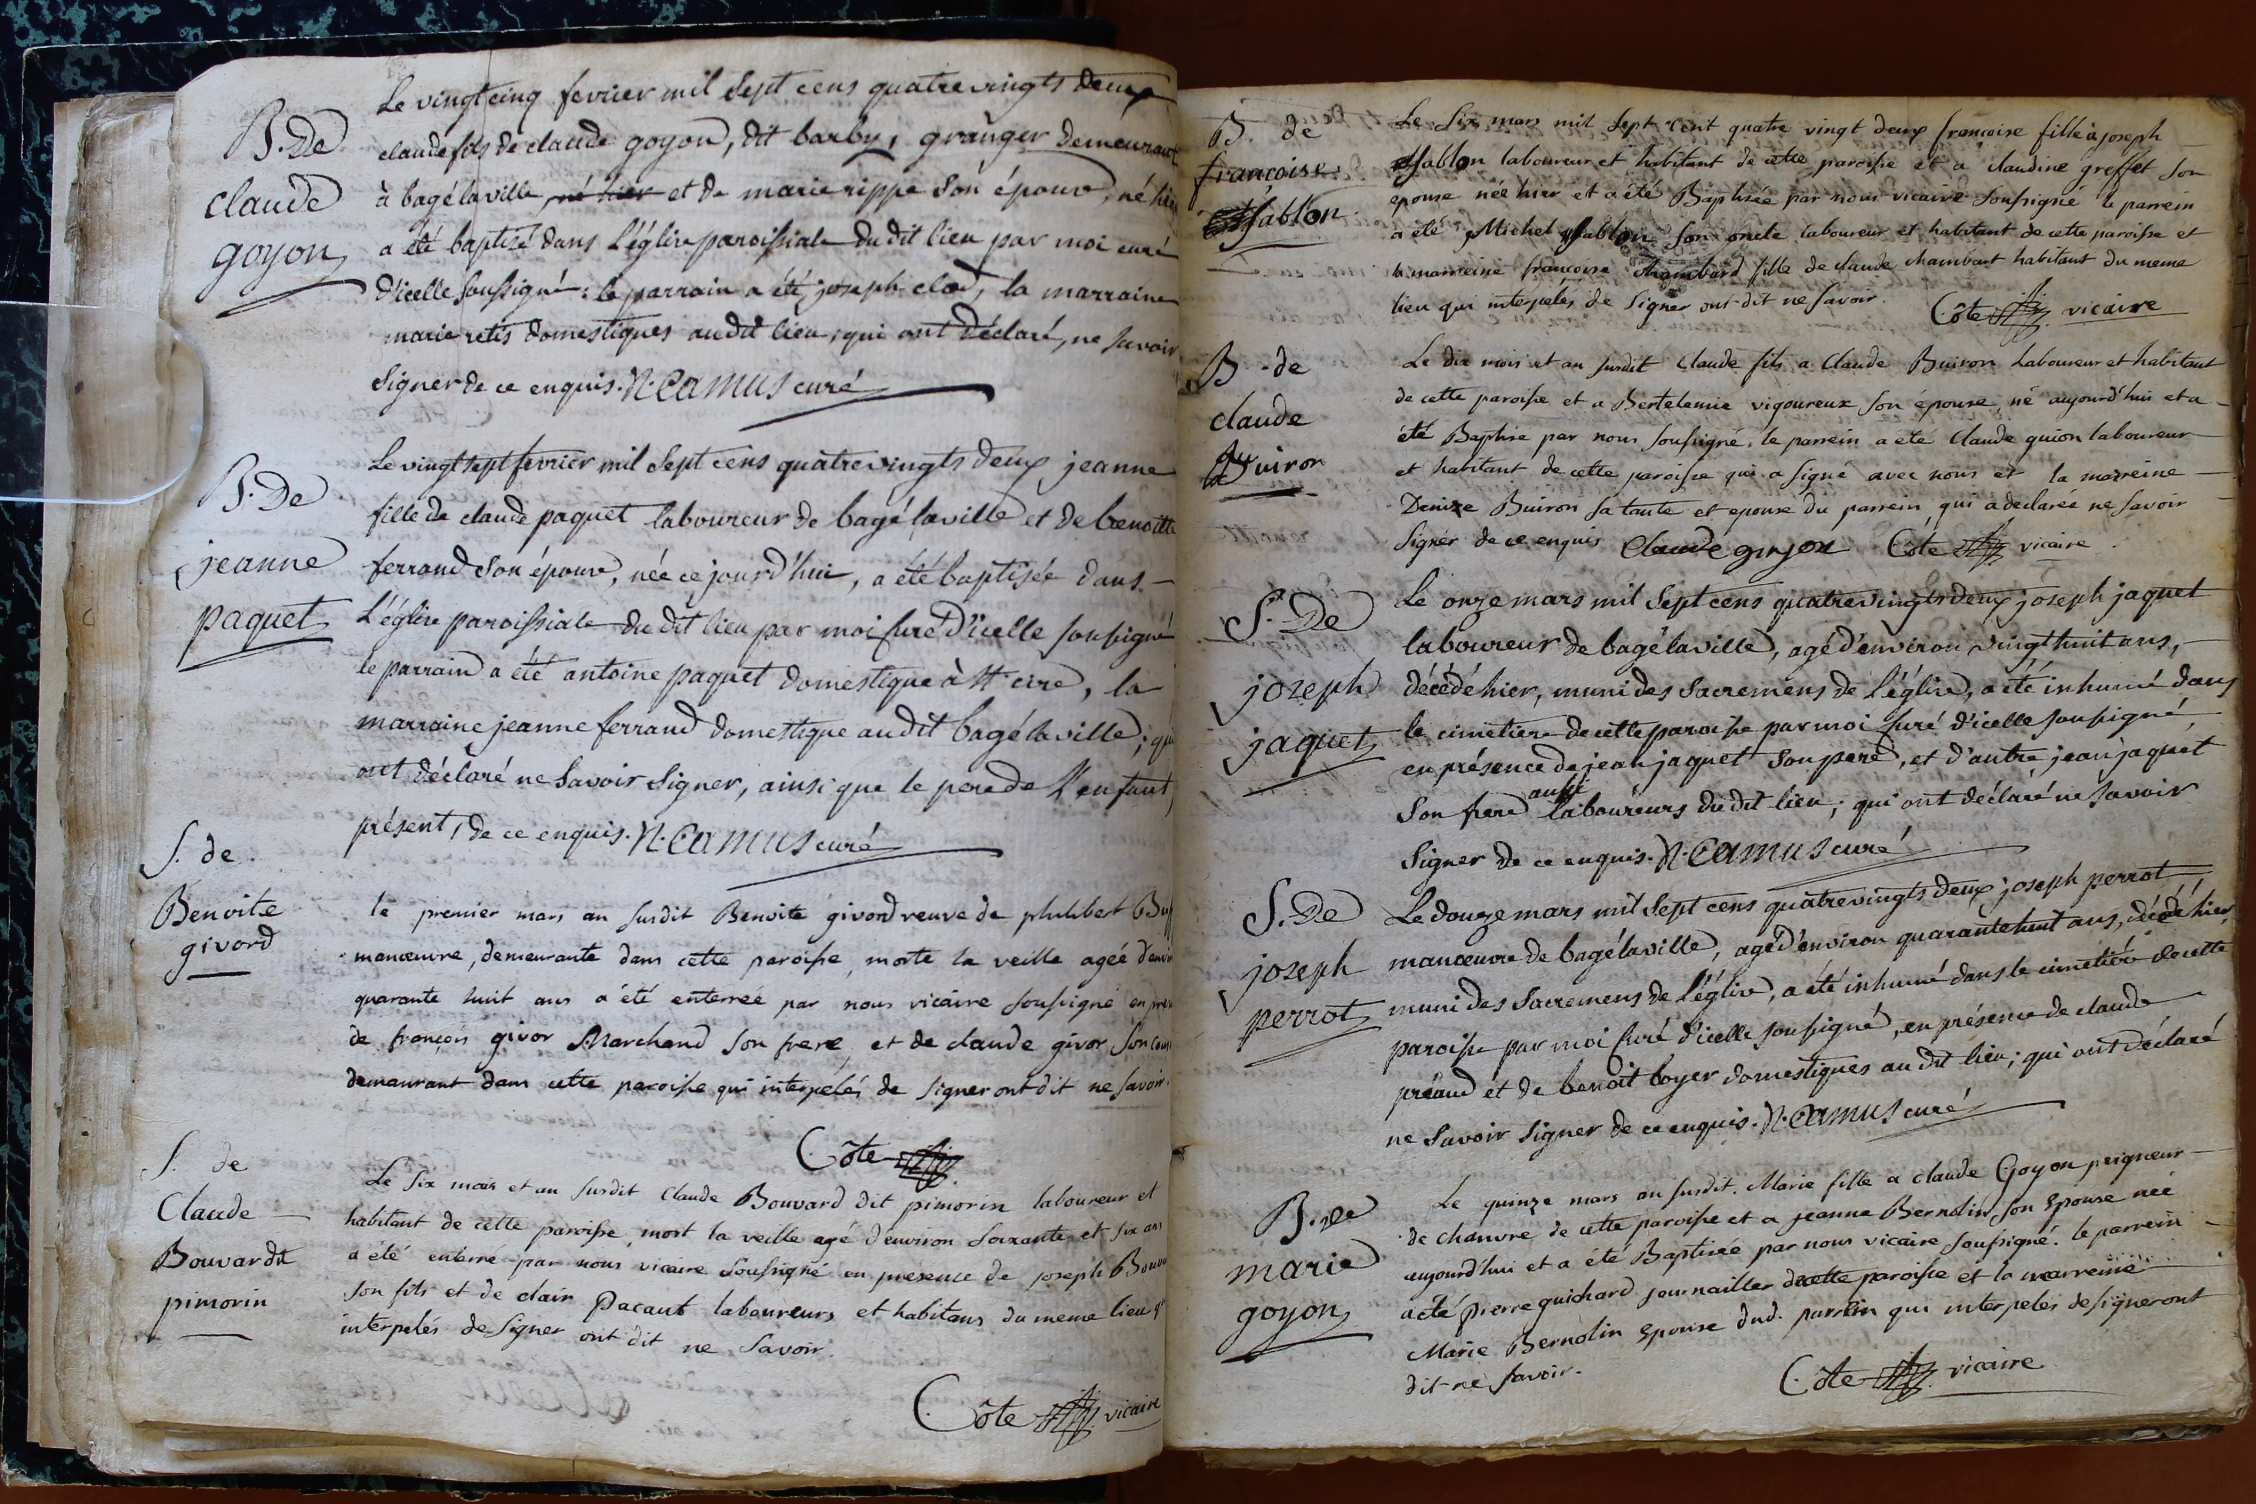 B. De
claude
goyon
Le vingt cinq fevrier mil sept cens quatre vingts deux
claude fils de claude goyon, dit barby, granger demeurant
à bagé la ville, né hier et de marie rippe son épouse, né hier
a été baptisé dans l'église paroissiale du dit lieu par moi curé
d'icelle soussigné: le parrain a été joseph clod, la marraine
marie retis domestiques au dit lieu, qui ont déclaré, ne savoir
signer de ce enquis. N. Camus curé
B. De
jeanne
paquet
Le vingt sept fevrier mil sept cens quatre vingts deux jeanne
fille de claude paquet laboureur de bagé la ville et de benoitte
ferrand son épouse, née ce jourd'hui, a été baptisée dans
l'église paroissiale du dit lieu par moi curé d'icelle soussigné
le parrain a été antoine paquet domestique à St cire, la
marraine jeanne ferrand domestique au dit bagé la ville; qui
ont déclaré ne savoir signer, ainsi que le pere de l'enfant,
présent, de ce enquis. N. Camus curé
S. de
Benoite
givord
le premier mars an susdit Benoite givord veuve de philibert
manœuvre, demeurante dans cette paroisse, morte la veille agée d'envi
quarante huit ans a été enterrée par nous vicaire soussigné en pres
de françois givor Marchand son frere, et de claude givor son cous
demeurant dans cette paroisse qui interpelés de signer ont dit ne savoir.
Côte
S. de
Claude
Bouvard dit
pimorin
Le six mois et an susdit Claude Bouvard dit pimorin laboureur et
habitant de cette paroisse, mort la veille agé d'environ soixante et six ans
a été enterré par nous vicaire soussigné en presence de joseph Bouva
son fils et de clair Pacaut laboureurs et habitans du meme lieu q
interpelés de signer ont dit ne savoir.
Côte vicaire
B. de
françoise
Sablon
Le Six mars mil sept cent quatre vingt deux françoise fille à joseph
Sablon laboureur et habitant de cette paroisse et a claudine greffet son
epouse née hier et a été Baptisée par nous vicaire soussigné le parrein
a été Michel Sablon son oncle laboureur et habitant de cette paroisse et
la marreine françoise Chambard fille de claude chambart habitant du meme
lieu qui interpelés de signer ont dit ne savoir. Côte vicaire
B. de
claude
Buiron
Le dix mois et an susdit claude fils a Claude Buiron laboureur et habitant
de cette paroisse et a Bertelemie vigoureux son épouse, né aujourd'hui et a
été Baptise par nous soussigné, le parrein a eté Claude guion laboureur
et habitant de cette paroisse qui a signé avec nous et la marreine
Denize Buiron sa tante et epouse du parrein qui a declarée ne savoir
signer de ce enquis Claude goyon Côte vicaire.
S. De
joseph
jaquet
Le onze mars mil sept cens quatre vingts deux joseph jaquet
laboureur de bagé la ville, agé d'environ vingt huit ans,
décédé hier, muni des sacremens de l'église, a été inhumé dans
le cimetiere de cette paroisse par moi curé d'icelle soussigné,
en présence de jean jaquet son pere, et d'autre jean jaquet
son frere aussi laboureurs du dit lieu; qui ont déclaré ne savoir
signer de ce enquis. N. Camus curé
S. De
joseph
perrot
Le douze mars mil sept cens quatre vingts deux joseph perrot
manœuvre de bagé la ville, agé d'environ quarante huit ans, décédé hier,
muni des sacremens de l'église, a été inhumé dans le cimetiere de cette
paroisse par moi curé d'icelle soussigné, en présence de claude
préaud et de benoit boyer domestiques au dit lieu; qui ont déclaré
ne savoir signer de ce enquis. N. Camus curé
B. de
marie
goyon
Le quinze mars an susdit. Marie fille a claude Goyon peigneur
de chanvre de cette paroisse et a jeanne Bernolin son Epouse née
aujourd'hui et a été Baptisée par nous vicaire soussigné. le parrein
a eté pierre guichard journaillier de cette paroisse et la marreine
Marie Bernolin Epouse dud. parrein qui interpelés de signer ont
dit ne savoir. Côte vicaire